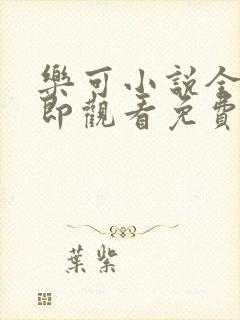 樂可小說全
即觀看免費
葉紫